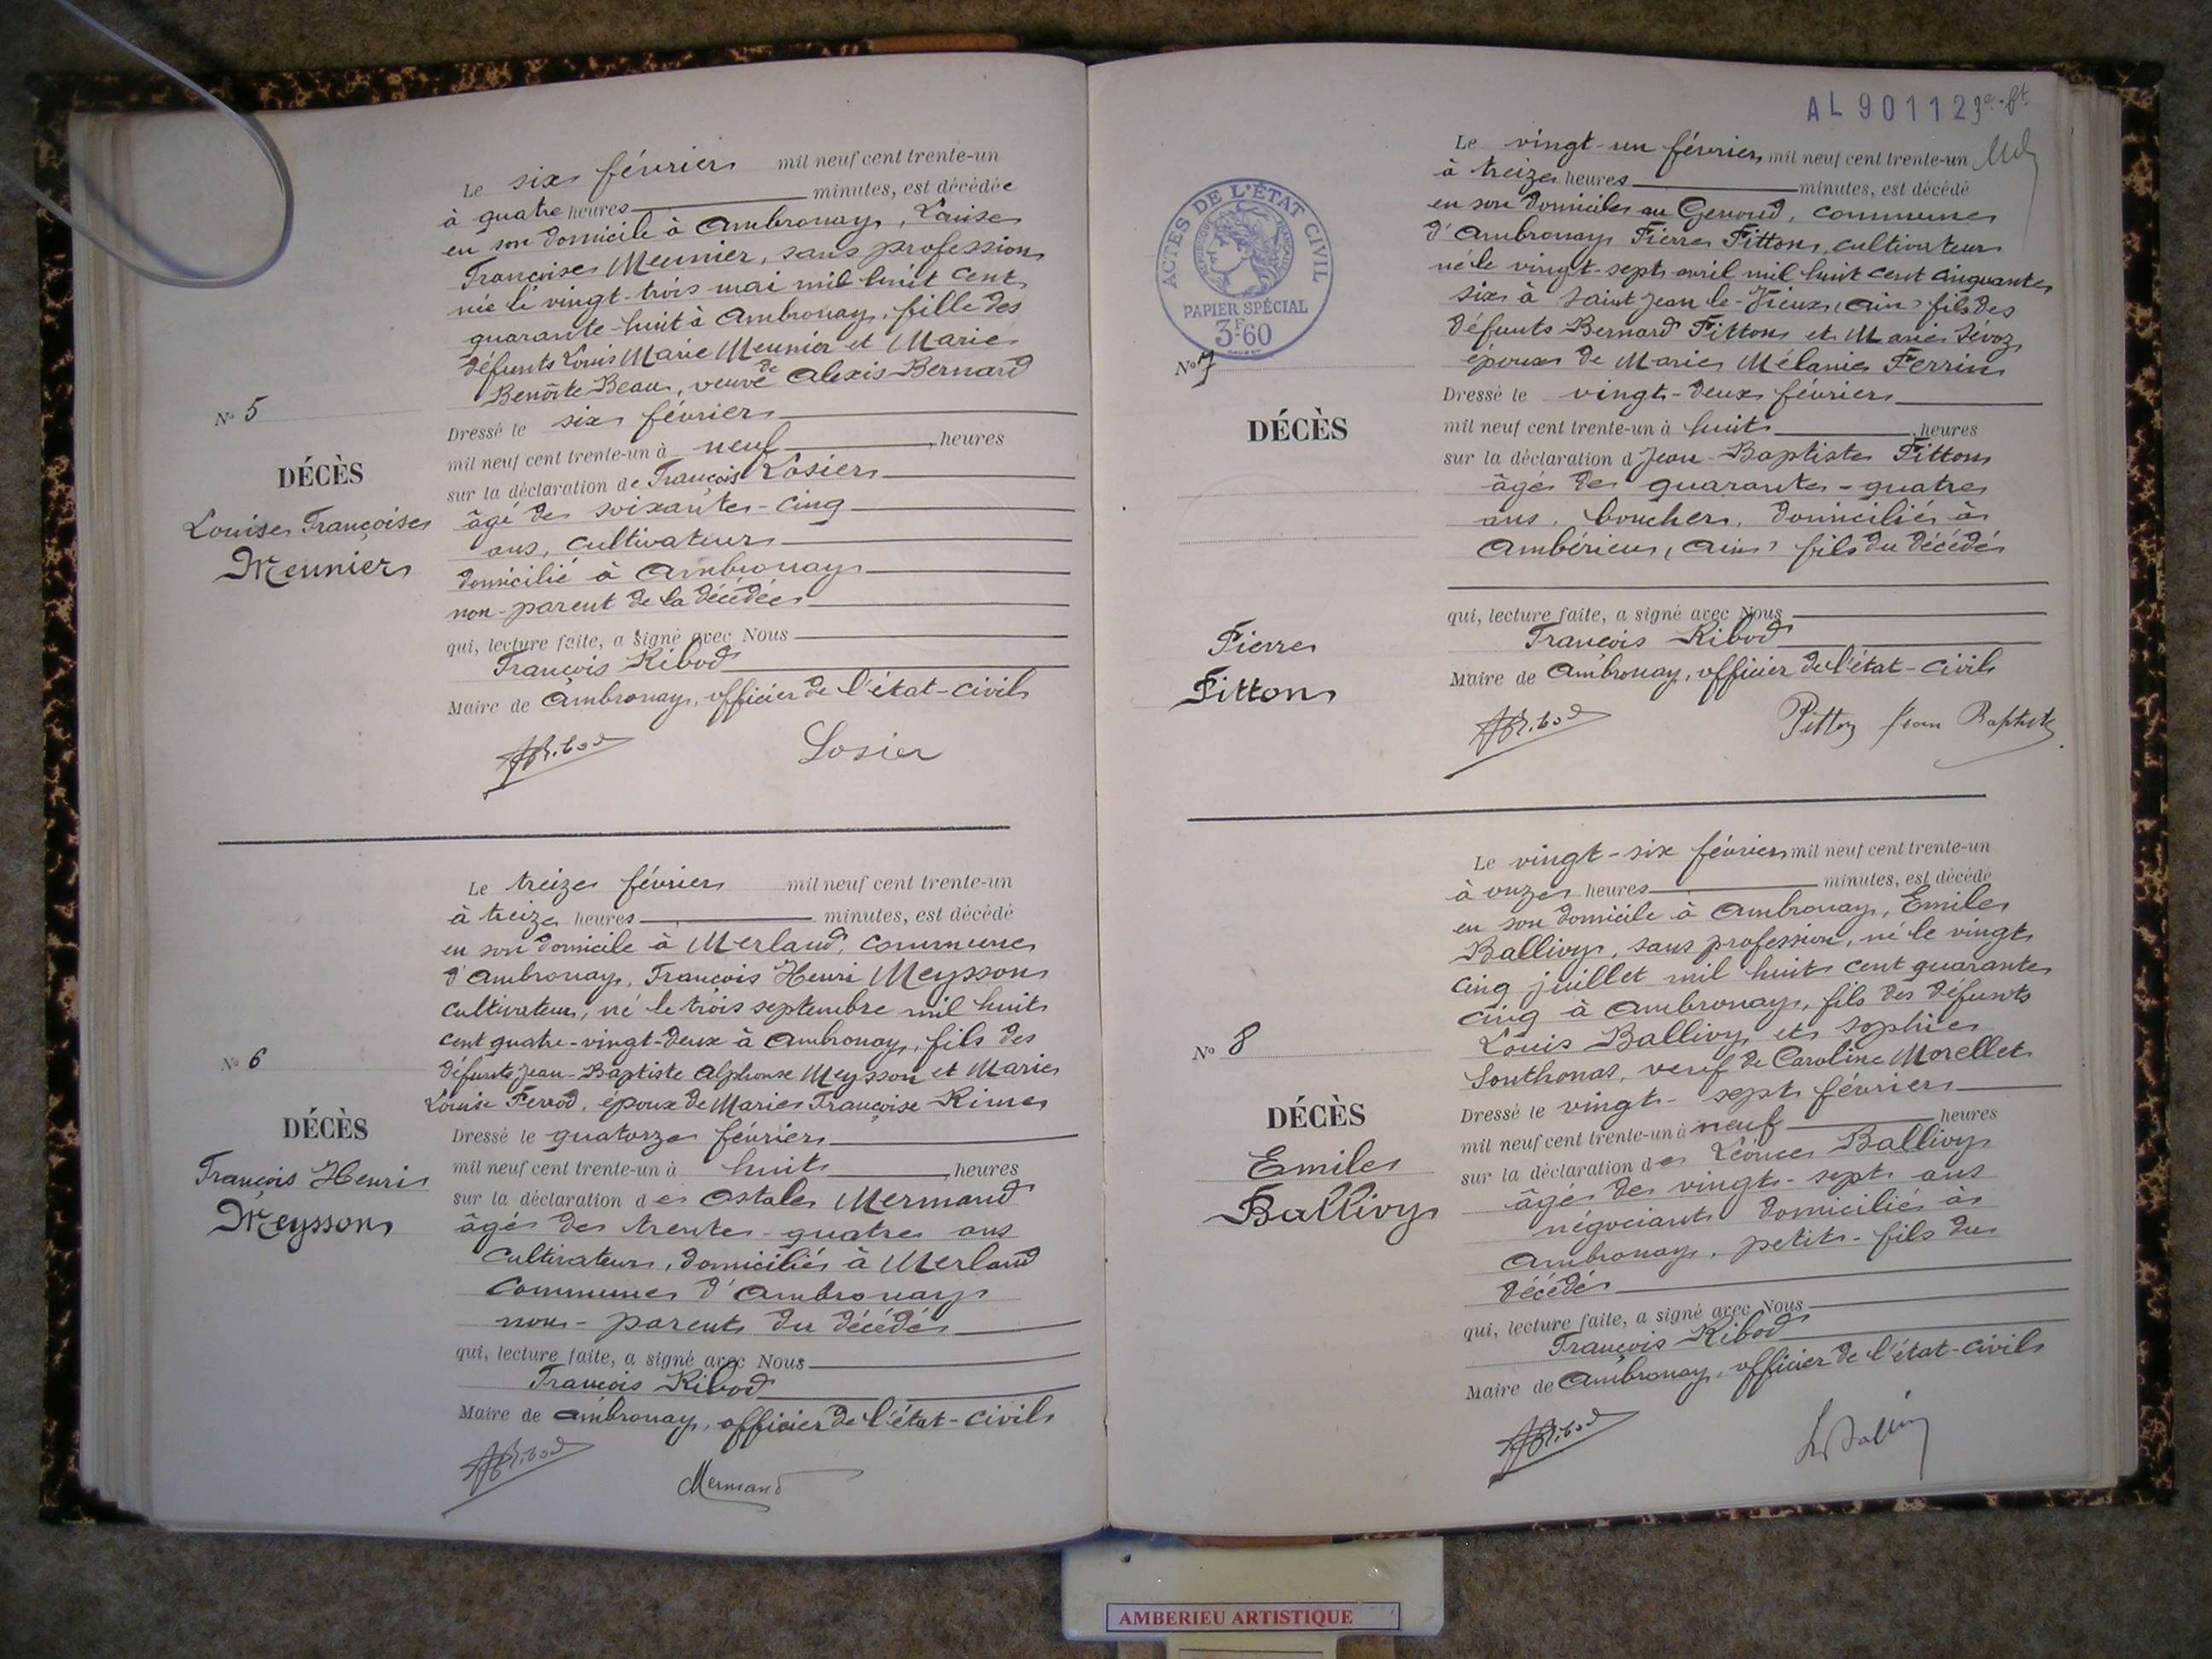 Le six février mil neuf cent trente-un
à quatre heures minutes, est décédée
en son domicile à Ambronay, Louise
Françoise Meunier, sans profession
née le vingt-trois mai mil huit cent
quarante-huit à Ambronay, fille des
défunts Louis Marie Meunier et Marie
Benoîte Beau, veuve de Alexis Bernard
N° 5
Dressé le six février
mil neuf cent trente-un à neuf heures
DÉCÈS
sur la déclaration de François Losier
Louise Françoise
âgé de soixante-cinq
Meunier
ans, cultivateur
domicilié à Ambronay
non-parent de la décédée
qui, lecture faite, a signé avec Nous
François Ribod
Maire de Ambronay, officier de l'état-civil
Losier
Le treize février mil neuf cent trente-un
à treize heures minutes, est décédé
en son domicile à Merland, commune
d'Ambronay, François Henri Meysson
cultivateur, né le trois septembre mil huit
cent quatre-vingt-deux à Ambronay, fils des
N° 6
défunts Jean-Baptiste Alphonse Meysson et Marie
Louise Ferrod, époux de Marie Françoise Rime
DÉCÈS
Dressé le quatorze février
mil neuf cent trente-un à huit heures
François Henri
sur la déclaration de Astale Mermand
Meysson
âgé de trente-quatre ans
cultivateur, domicilié à Merland
commune d'Ambronay
non-parent du décédé
qui, lecture faite, a signé avec Nous
François Ribod
Maire de Ambronay, officier de l'état-civil
Mermand
AL 901123
Le vingt-un février mil neuf cent trente-un
à treize heures minutes, est décédé
en son domicile au Genoud, commune
d'Ambronay Pierre Pitton, cultivateur
né le vingt-sept avril mil huit cent cinquante
six à Saint Jean-le-Vieux (Ain) fils des
défunts Bernard Pitton et Marie Sévoz
époux de Marie Mélanie Perrin
ACTES DE L'ÉTAT CIVIL
PAPIER SPÉCIAL
3F.60
N° 7
Dressé le vingt-deux février
DÉCÈS
mil neuf cent trente-un à huit heures
sur la déclaration d Jean-Baptiste Pitton
âgé de quarante-quatre
ans, boucher, domicilié à
Ambérieu (Ain) fils du décédé
qui, lecture faite, a signé avec Nous
Pierre
François Ribod
Pitton
Maire de Ambronay, officier de l'état-civil
Pitton Jean Baptiste
Le vingt-six février mil neuf cent trente-un
à onze heures minutes, est décédé
en son domicile à Ambronay, Emile
Ballivy, sans profession, né le vingt
cinq juillet mil huit cent quarante
cinq à Ambronay, fils des défunts
Louis Ballivy et Sophie
N° 8
Southonax, veuf de Caroline Morellet
Dressé le vingt-sept février
DÉCÈS
mil neuf cent trente-un à neuf heures
Emile
sur la déclaration de Léonce Ballivy
Ballivy
âgé de vingt-sept ans
négociant domicilié à
Ambronay, petit-fils du
décédé
qui, lecture faite, a signé avec Nous
François Ribod
Maire de Ambronay, officier de l'état-civil
AMBERIEU ARTISTIQUE